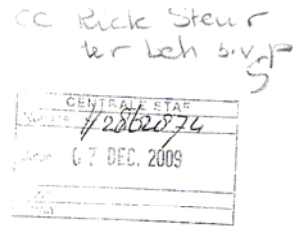 cc Rick Steur
ter beh b.v.p
CENTRALE STAF
1/2862874
07 DEC. 2009